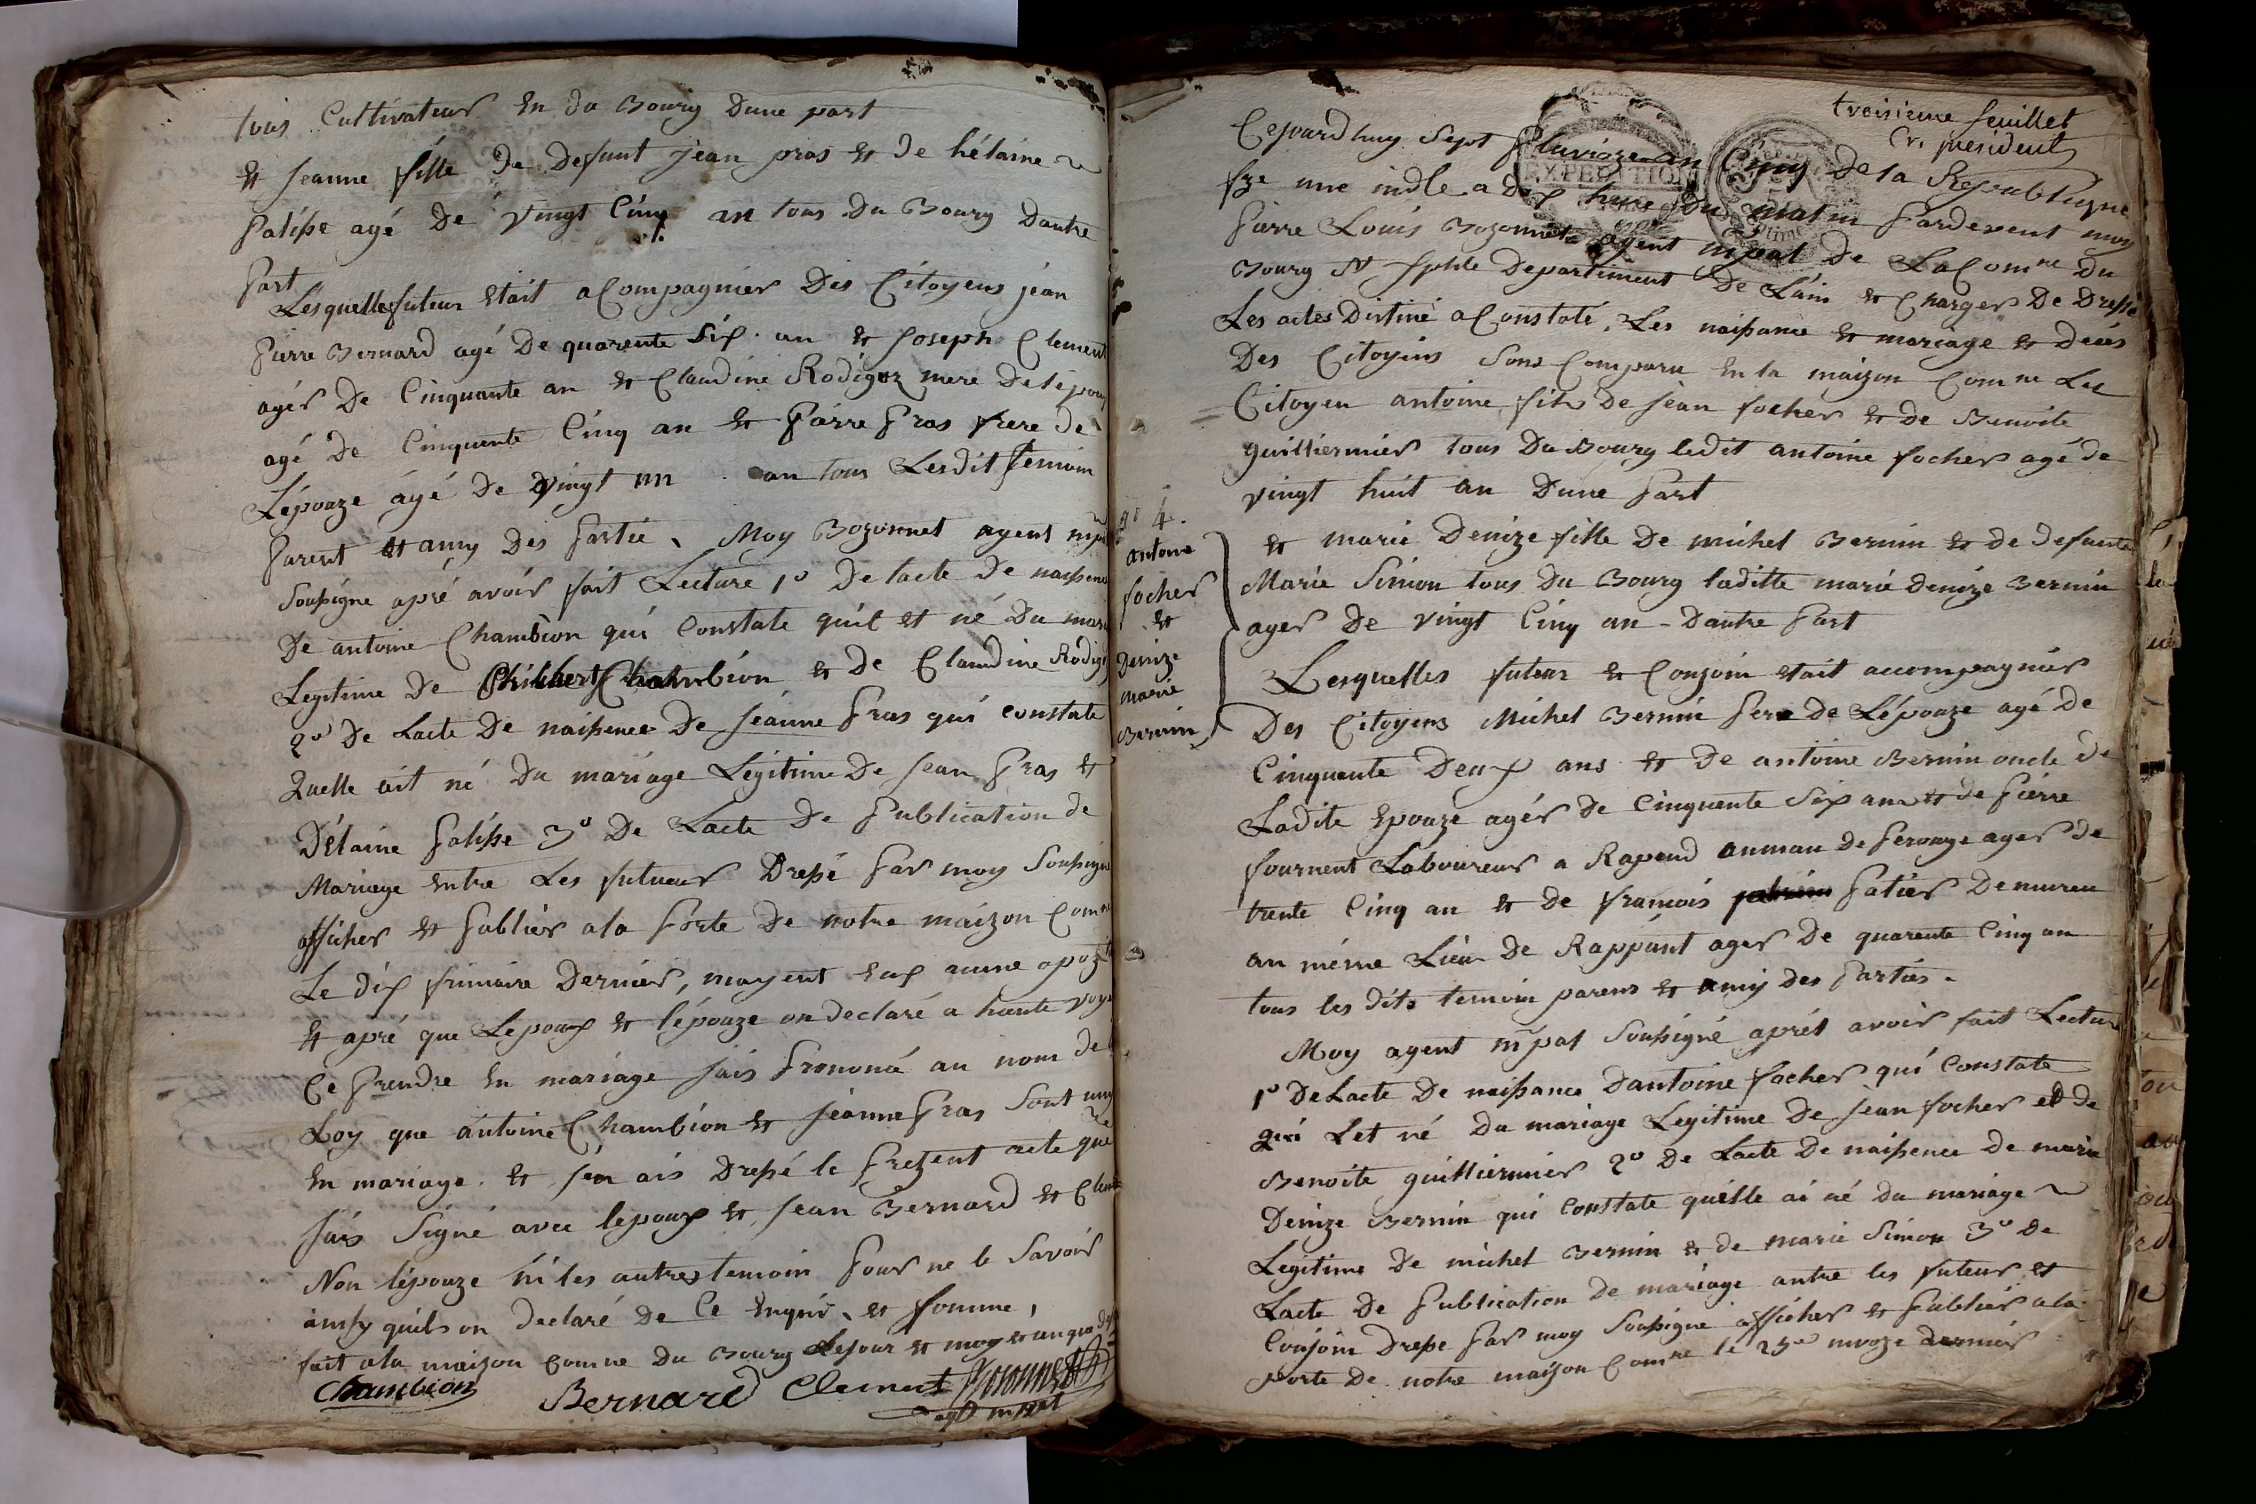 tous Cultivateur En du Bourg Dune part
et Jeanne fille De Defunt jean pras et de hélaine
Palisse agé De vingt Cinq an tous Du Bourg Dautre
part
Lesquelle futeur etait acompagnier Des Citoyens jéan
pierre Bernard agé De quarente Six an et Joseph Clement
agér De Cinquante an et Claudine Rodiguz mere De lépoux
agé De Cinquente Cinq an et piérre pras frere de
Lépouze agé De vingt un an tous Lesdit temoin
parent et amy Des partie, Moy Bozonnet agent
Soussigne apré avoir fait Lecture 1º De lacte De naissence
De antoine Chambion qui Constate quil et né Du
Legitime De Philibert Chambion et De Claudine
2º De Lacte De naissence De Jeánne pras qui constate
Quelle ait né Du mariage Légitime De Jean pras et
Délaine palisse 3º De Lacte De publication de
Mariage Entre Les futueur Dressé par moy Soussigné
afficher et publier ala porte De notre maizon
Le dix frimaire Dernier, mayent eux aucune
et apré que Lepoux et lépouze on declaré a haute
Ce prendre En mariage Jais prononcé au nom de
Loy que antoine Chambion et jeánne pras Sont
En mariage. et J'en ais Dressé le prezent acte que
Jais Signé avec lepoux et Jean Bernard et
Non lépouze ni les autres temoin pour ne le Savoir
ainsy quils on Declaré de Ce Enquis, et Somme,
fait ala maison comne Du Bourg Le jour et
Chambion Bernard Clement Bozonnet
troisieme feuillet
president
Cejourdhuy Sept pluvioze an Cinq De la Republique
fze une indle a Dix hure Du matin pardevent moy
pierre Louis Bozonnet agent mpal De La Comne Du
Bourg St Departiment De Láin et Charger De Dressé
Les actes Distiné a Constaté, Les naissance et mariage et Décés
Des Citoyins Sons Comparu En la maizon Comne Les
Citoyen antoine fils De Jéan focher et de Benoite
guilliermier tous Du Bourg ledit antoine focher agé de
vingt huit an Dune part
4.
antoine
focher
et
Denize
marie
Bernin
et marie Denize fille De michel Bernin et de defunte
Marie Simon tous Du Bourg laditte marie denize Bernin
ager De vingt Cinq an - Dautre part
Lesquelles futeur et Conjoin etait accompagniér
Des Citoyens Michel Bernin pere De Lépouze agé De
Cinquente Deux ans et De antoine Bernin oncle De
Ladite Epouze agér de Cinquente Six an et de piérre
fournent Laboureur a Rapend ager de
trente Cinq an et de framois patier Demureu
au méme Liéu De Rappant ager De quarente Cinq an
tous les dits temoin parens et amiy des parties.
Moy agent mpal Soussigné aprét avoir fait Lecture
1º De Lacte De naissance Dantoine focher qui Constate
qui Let né Du mariage Legitime De Jean focher et De
Benoite guilliermier 2º De Lacte De naissence de marie
Denize Bernin qui constate quélle ai né Du mariage
Legitime De michel Bernin et de marie Simon 3º De
Lacte De publication De mariage antre les futeur et
Conjoin Dresse par moy Soussigné afficher et publier ala
porte De notre maizon Comne le 25e nivoze dernier